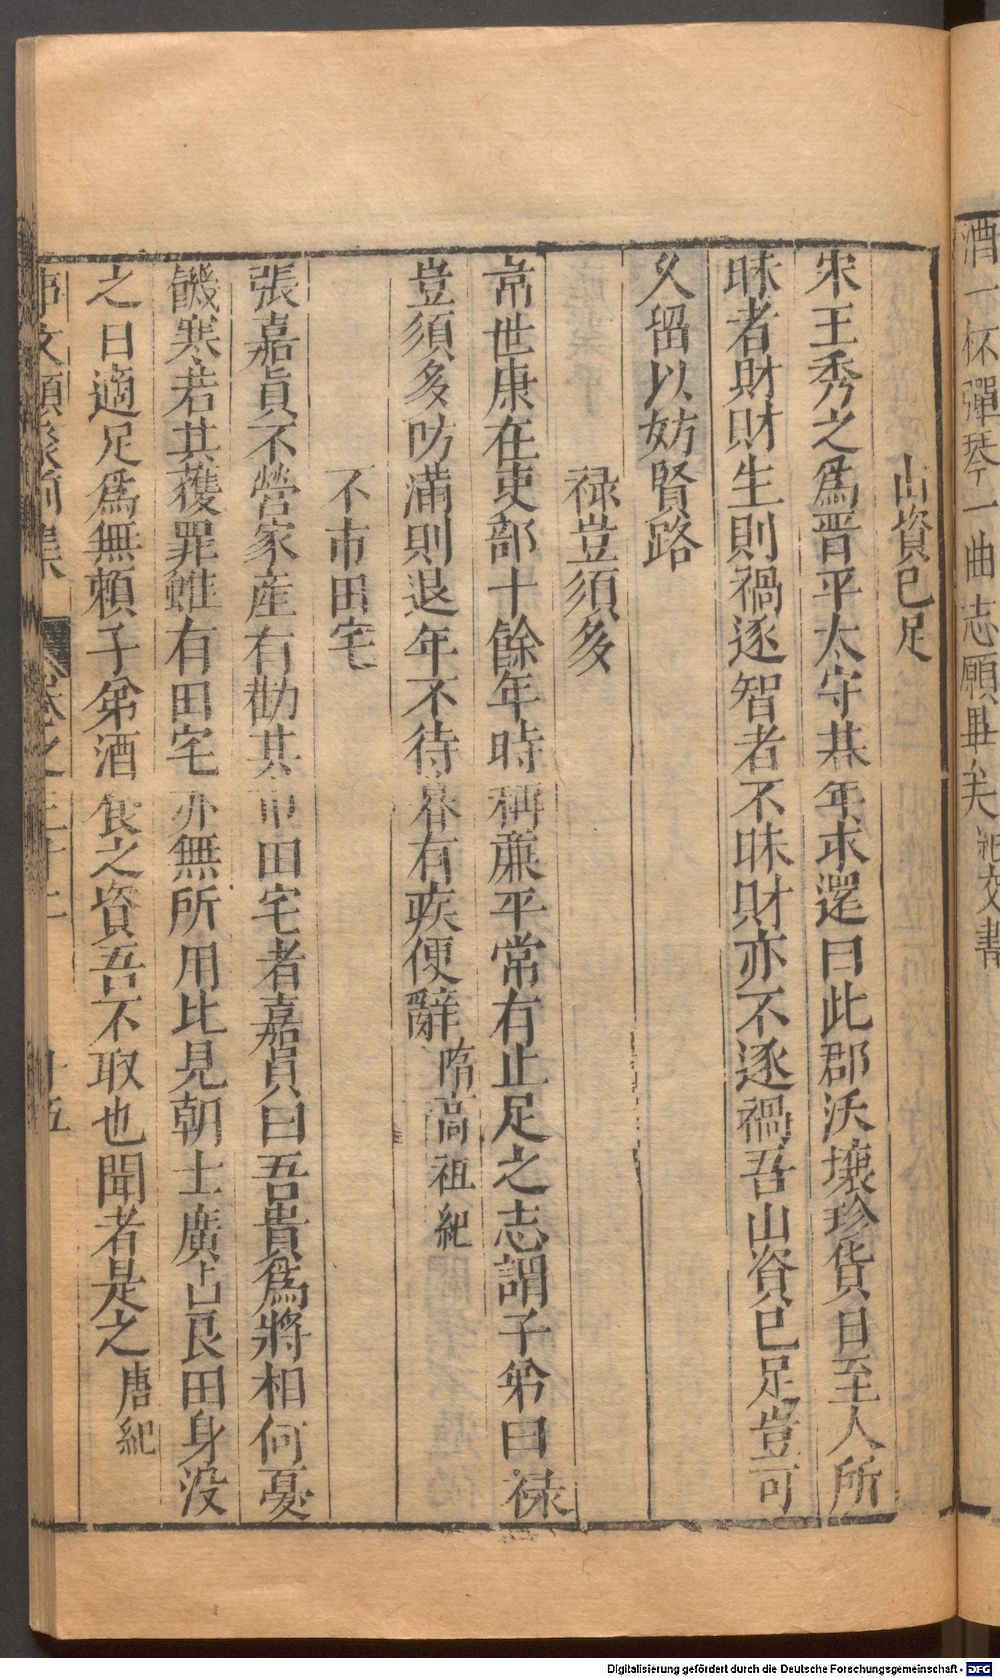 酒一杯彈琴一曲志願畢矣 文書
山資已足
宋王秀之爲晋平太守朞年求還曰此郡沃壤珍貨日至人所
昧者財財生則禍逐智者不昧財亦不逐禍吾山資已足豈可
久留以妨賢路
禄豈須多
韋世康在吏部十餘年時稱廉平常有止足之志謂子弟曰禄
豈須多防滿則退年不待暮有疾便辭隋高祖紀
不市田宅
張嘉貞不營家産有勸其市田宅者嘉貞曰吾貴爲將相何憂
饑寒若其獲罪雖有田宅亦無所用比見朝士廣占良田身没
之日適足爲無賴子弟酒食之資吾不取也聞者是之唐紀
事文類聚前集 卷之三十二 十五
Digitalisierung gefördert durch die Deutsche Forschungsgemeinschaft - DFG